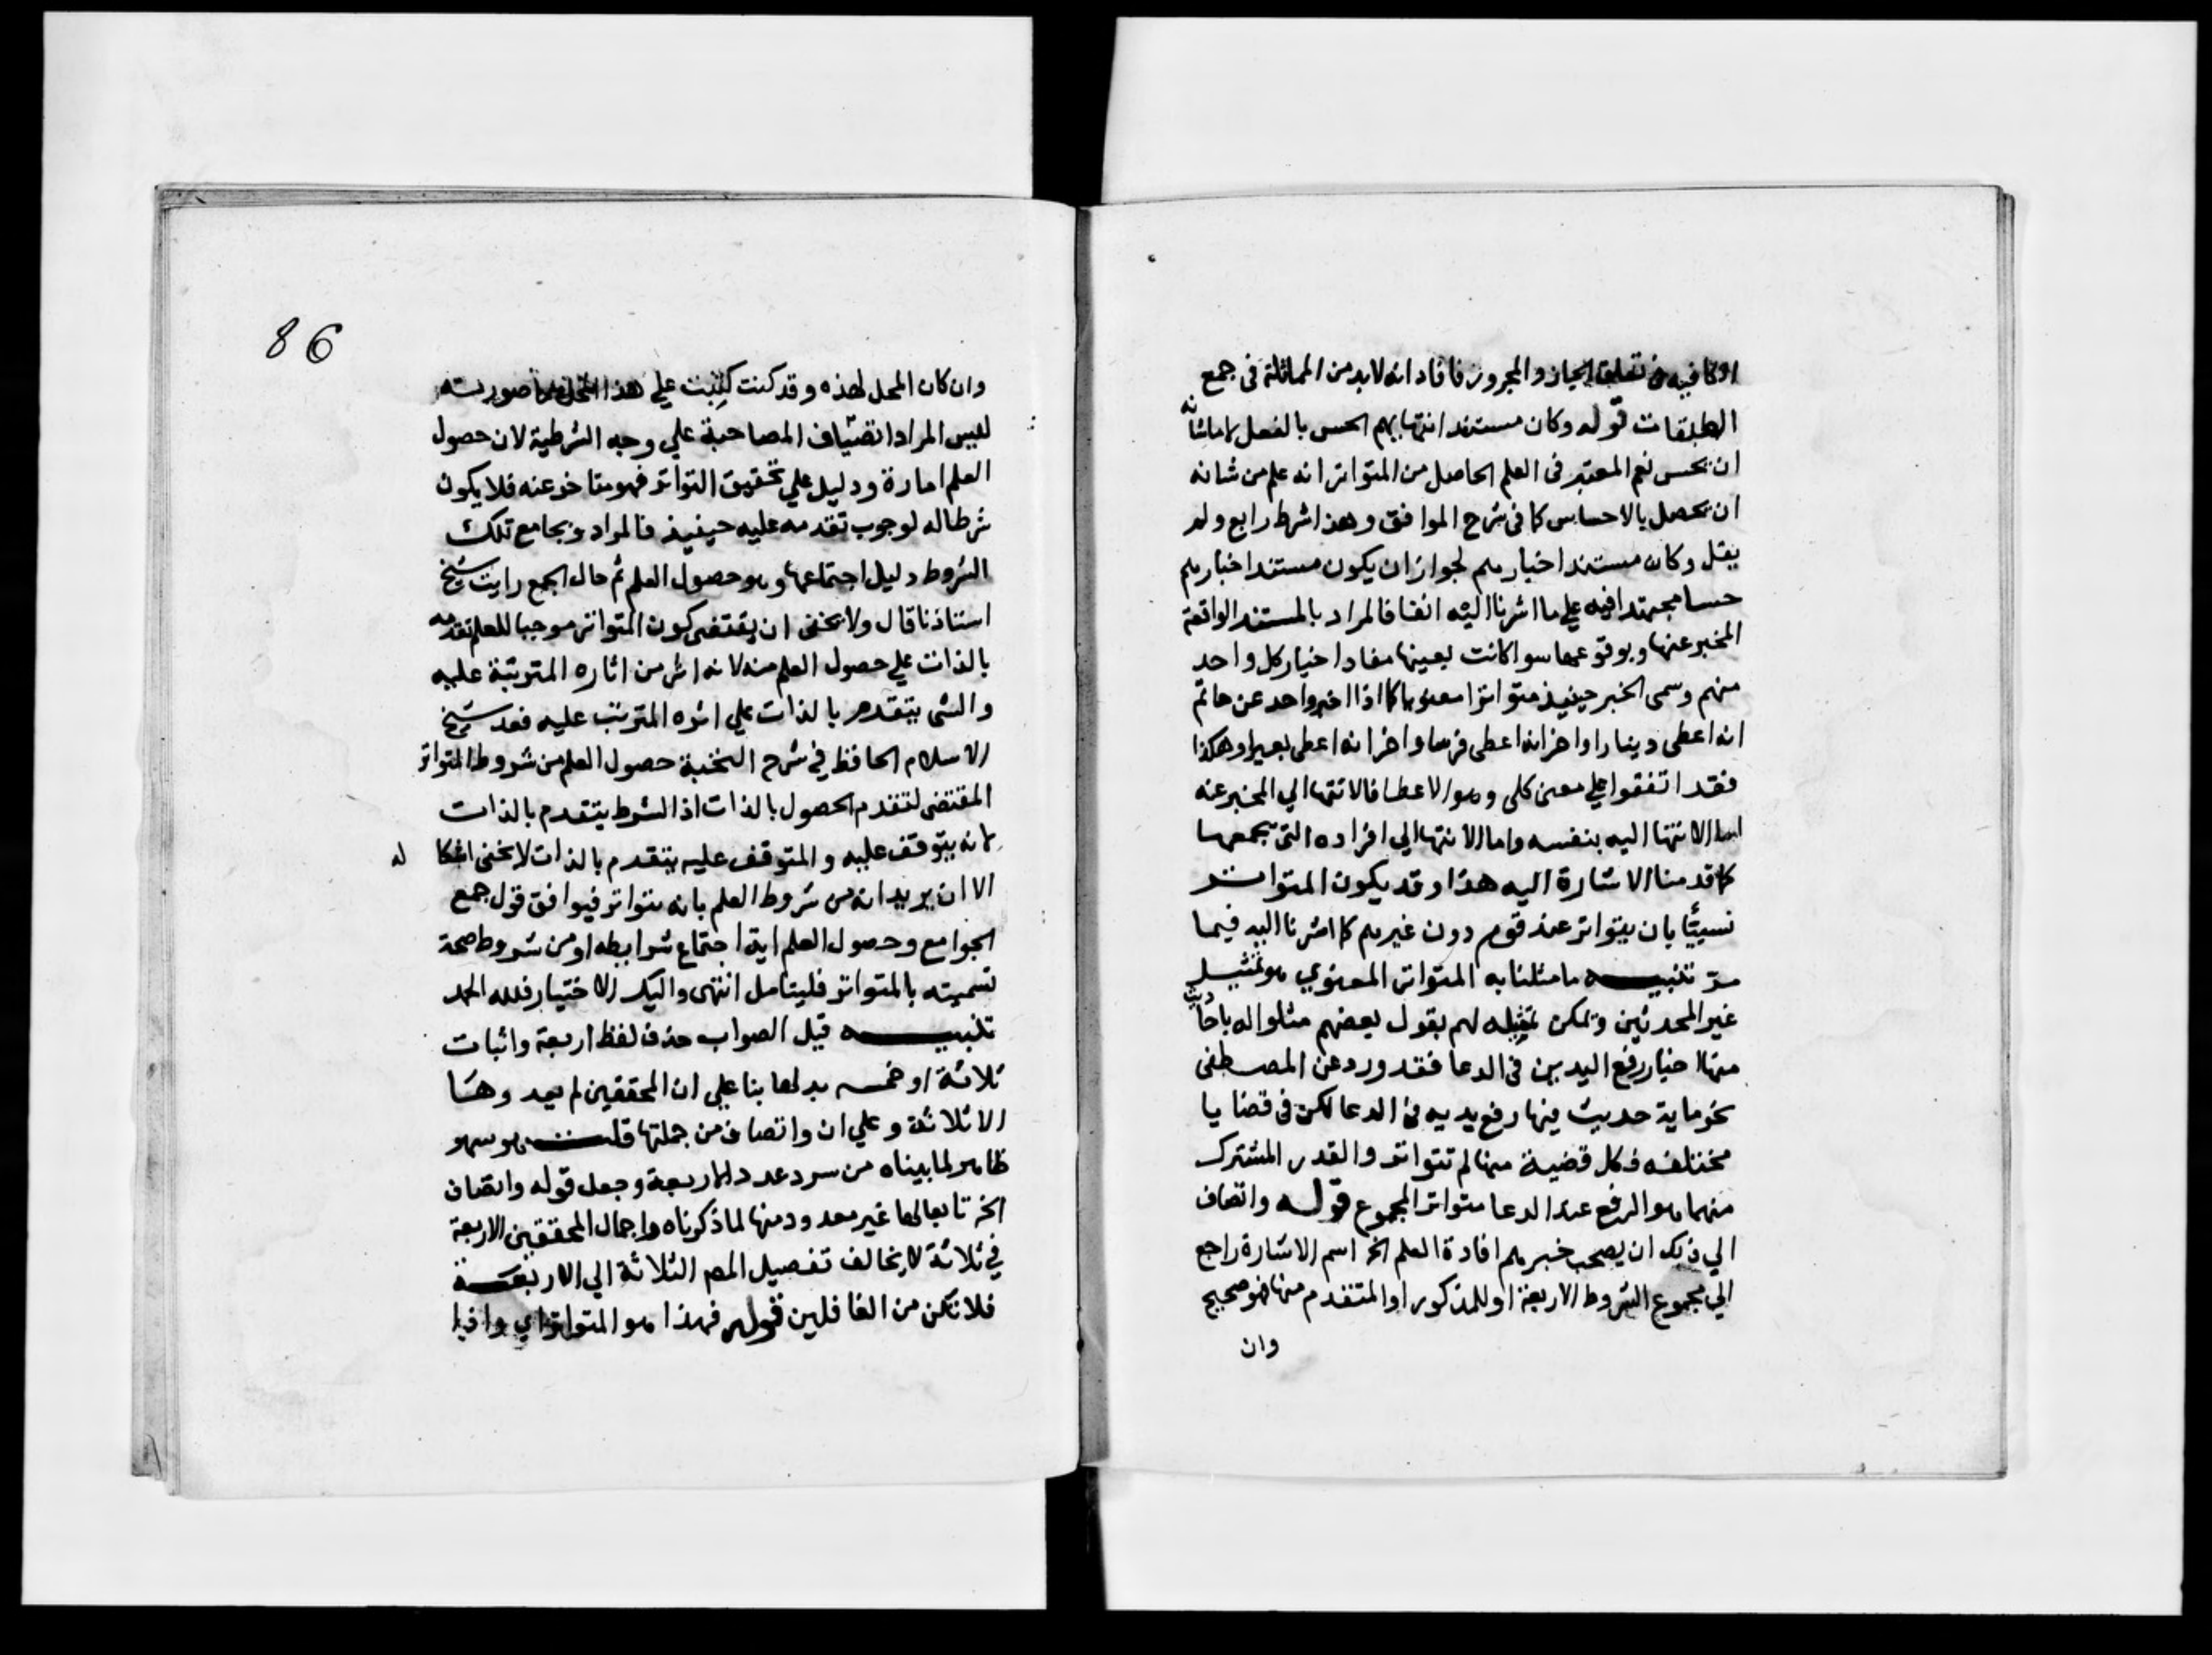 او كافيه في تعلق الجار والمجرور فافاد انه لابد من المماثلة في جمع
الطبقات قوله وكان مستند انتهايهم الحس بالفعل لا ماشانه
ان يحس نعم المعتبر في العلم الحاصل من المتواتر انه علم من شانه
ان يحصل بالاحساس كما في شرح المواقف وهذا شرط رابع ولم
يقل وكان مستند اخبارهم لجواز ان يكون مستند اخبارهم
حسا مجتهدا فيه علي ما اشرنا اليه انفا فالمراد بالمستند الواقعة
المخبر عنها وبوقوعها سوا كانت بعينها مفاد اخبار كل واحد
منهم وسمى الخبر حينيذ متواترا معنويا كما اذا اخبر واحد عن حاتم
انه اعطى دينارا واخر انه اعطى فرسا واخر انه اعطى بعيرا وهكذا
فقد اتفقوا علي معنى كلى وهو الاعطا فالانتها الي المخبر عنه
اما الانتها اليه بنفسه واما الانتها الي افراده التي تجمعها
كما قدمنا الاشارة اليه هذا وقد يكون المتواتر
نسبيا بان يتواتر عند قوم دون غيرهم كما اشرنا اليه فيما
مر تنبيه ما مثلنا به المتواتر المعنوي هو تمثيل
غير المحدثين ويمكن تمثيله لهم بقول بعضهم مثلوا له باحاديث
منها اخبار رفع اليدين في الدعا فقد ورد عن المصطفى
نحو ماية حديث فيها رفع يديه في الدعا لكن في قضايا
مختلفه فكل قضية منها لم تتواتر والقدر المشترك
منهما وهو الرفع عند الدعا متواتر المجموع قوله وانضاف
الي ذلك ان يصحب خبرهم افادة العلم الخ اسم الاشارة راجع
الي مجموع الشروط الاربعة او للمذكور او المتقدم منها فهو صحيح
وان
86
وان كان المحل لهذه وقد كنت كتبت علي هذا المحل ما صورته
ليس المراد انضياف المصاحبة علي وجه الشرطية لان حصول
العلم امارة ودليل علي تحقيق التواتر فهو متاخر عنه فلا يكون
شرطا له لوجوب تقدمه عليه حينيذ فالمراد ويجامع تلك
الشروط دليل اجتماعها وهو حصول العلم ثم حال الجمع رايت شيخ
استاذنا قال ولا يخفى ان يقتضى كون المتواتر موجبا للعلم تقدمه
بالذات علي حصول العلم منه لانه اثر من اثاره المترتبة عليه
والشى يتقدم بالذات علي اثره المترتب عليه فعد شيخ
الاسلام الحافظ في شرح النخبة حصول العلم من شروط المتواتر
المقتضى لتقدم الحصول بالذات اذ الشرط يتقدم بالذات
لانه يتوقف عليه والمتوقف عليه يتقدم بالذات لا يخفى اشكاله
الا ان يريد انه من شروط العلم بانه متواتر فيوافق قول جمع
الجوامع وحصول العلم اية اجتماع شرايطه او من شروط صحة
تسميته بالمتواتر فليتامل انتهى واليك الاختيار فلله الحمد
تنبيه قيل الصواب حذف لفظ اربعة واثبات
ثلاثة او خمسه بدلها بنا علي ان المحققين لم يعدوها
الا ثلاثة وعلي ان وانضاف من جملتها قلت وهو سهو
ظاهر لما بيناه من سرد عدد الاربعة وجعل قوله وانضاف
الخ تابعا لها غير معدود منها لما ذكرناه واجمال المحققين الاربعة
في ثلاثة لا يخالف تفصيل المص الثلاثة الي الاربعة
فلا تكن من الغافلين قوله فهذا هو المتواتر اي وافيا